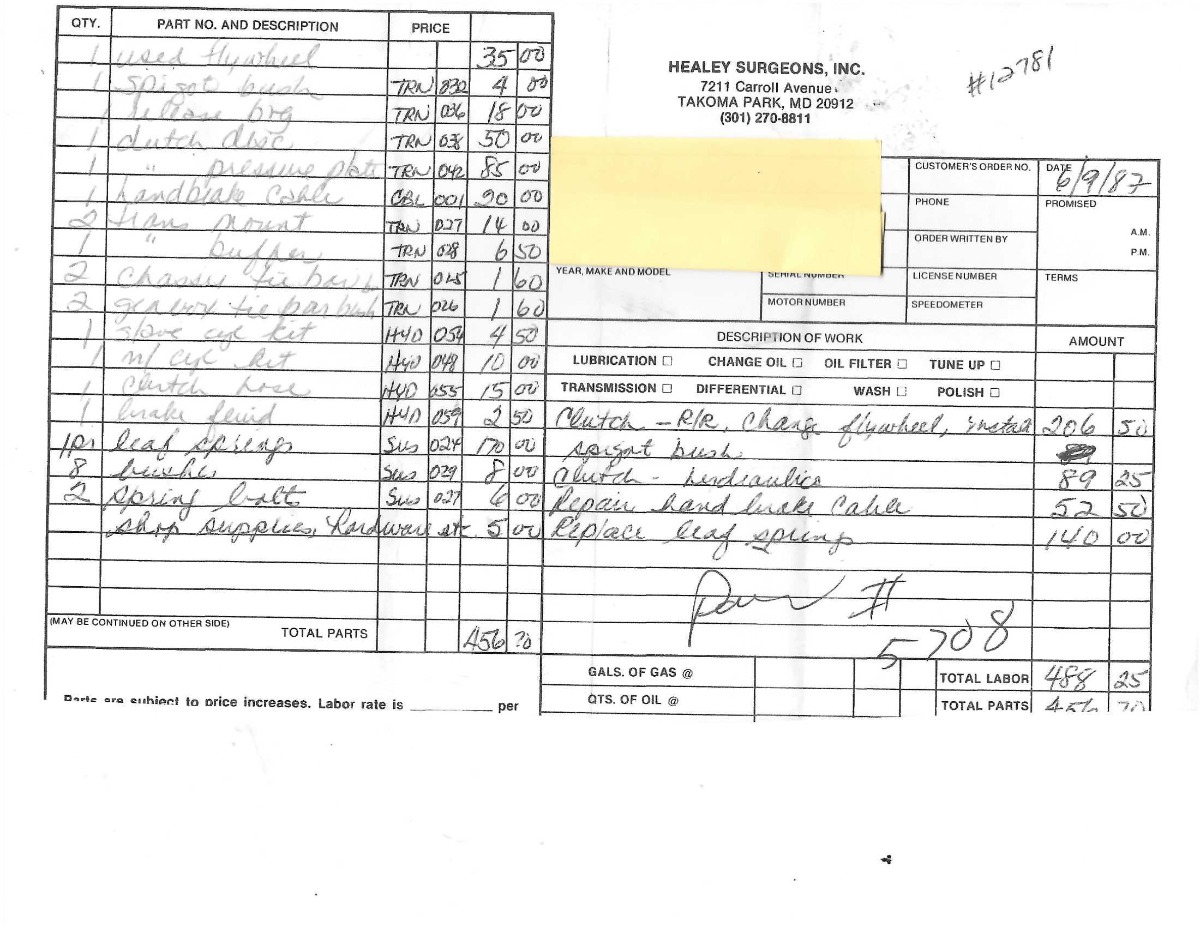 QTY. PART NO. AND DESCRIPTION PRICE
1 used flywheel 35 00
1 spigot bush TRN 032 4 00
1 release brg TRN 036 18 00
1 clutch disc TRN 038 50 00
1 " pressure plate TRN 042 85 00
1 handbrake cable CBL 001 20 00
2 trans mount TRN 027 14 00
1 " buffer TRN 028 6 50
2 chassis tie bar TRN 025 1 60
2 gearbox tie bar bush TRN 026 1 60
1 slave cyl kit HYD 054 4 50
1 m/cyl kit HYD 048 10 00
1 clutch hose HYD 055 15 00
1 brake fluid HYD 059 2 50
1pr leaf springs SUS 024 170 00
8 bushes SUS 029 8 00
2 spring bolts SUS 027 6 00
shop supplies, hardware etc 5 00
(MAY BE CONTINUED ON OTHER SIDE) TOTAL PARTS 456 70
Parts are subject to price increases. Labor rate is ________ per
HEALEY SURGEONS, INC.
7211 Carroll Avenue
TAKOMA PARK, MD 20912
(301) 270-8811
#12781
CUSTOMER'S ORDER NO. DATE 6/9/87
PHONE PROMISED
A.M.
ORDER WRITTEN BY P.M.
YEAR, MAKE AND MODEL SERIAL NUMBER LICENSE NUMBER TERMS
MOTOR NUMBER SPEEDOMETER
DESCRIPTION OF WORK AMOUNT
LUBRICATION □ CHANGE OIL □ OIL FILTER □ TUNE UP □
TRANSMISSION □ DIFFERENTIAL □ WASH □ POLISH □
Clutch - R/R, change flywheel, install 206 50
spigot bush
Clutch - hydraulics 89 25
Repair hand brake cable 52 50
Replace leaf springs 140 00
#
5708
GALS. OF GAS @ TOTAL LABOR 488 25
QTS. OF OIL @ TOTAL PARTS 456 70